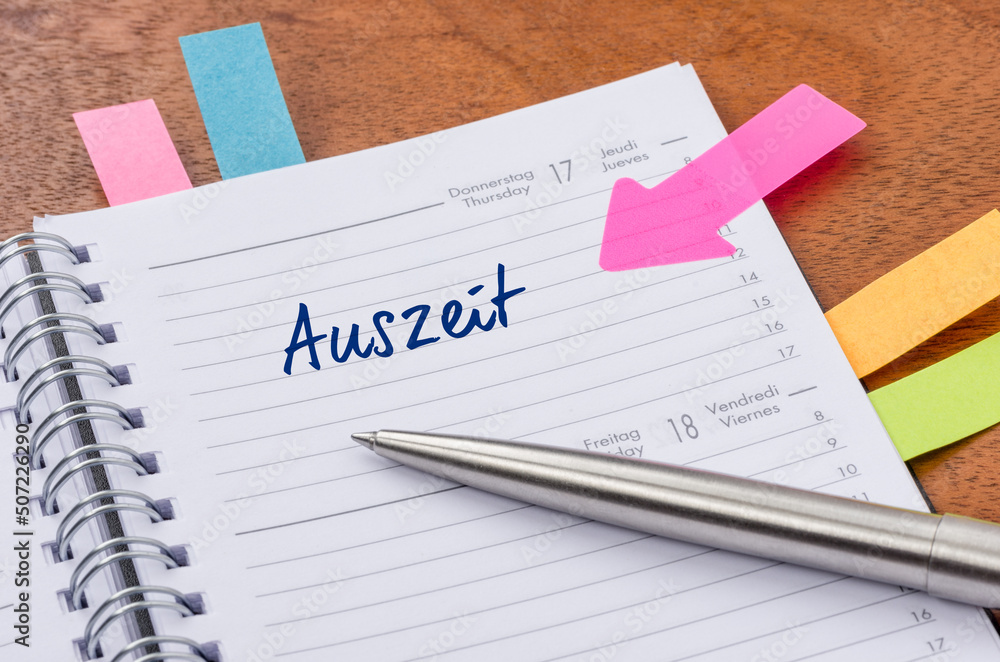 Donnerstag 17 Jeudi
Thursday Jueves
8
11
12
Auszeit
14
15
16
17
Freitag 18 Vendredi
Viernes
8
9
10
16
17
Adobe Stock | #507226290